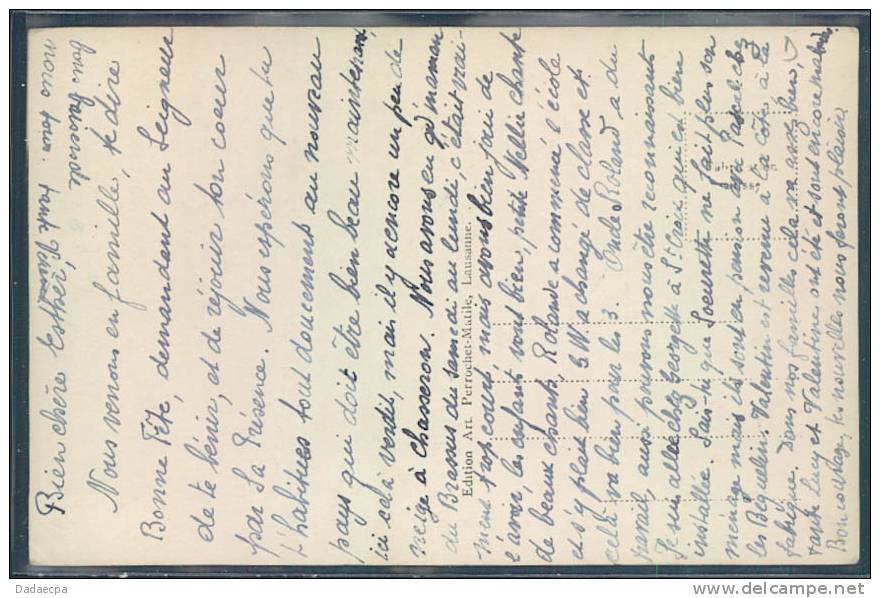 Bien chère Esther,
Nous venons en famille, te dire
Bonne Fête, demandant au Seigneur
de te bénir, et de réjouir ton coeur
par Sa Présence. Nous espérons que tu
t'habitues tout doucement au nouveau
pays qui doit être bien beau maintenant,
ici cela verdit, mais il y a encore un peu de
neige à Chasseron. Nous avons eu gd'maman
du Brassus du samedi au lundi, c'était vrai-
ment trop court, mais avons bien joui de
l'avoir, les enfants vont bien, petite Nellie chante
de beaux chants, Rolande a commencé l'école
et s'y plait bien, a changé de classe et
cela va bien pour les 3. Oncle Roland a du
travail, aussi pouvons nous être reconnaissants
Je suis allée chez Georgette à St. Croix qui est bien
installée. Sais-tu que Soeurette ne fait plus son
ménage mais ils sont en pension chez
les Béguelin. Valentin est revenu à la côte à la
fabrique. Dans nos familles cela va assez bien,
tante Lucy et Valentine ont été et sont encore
Bon courage, tes nouvelles nous feront plaisir
nous tous. tante
Edition Art Perrochet-Matile, Lausanne.
Dadaecpa
www.delcampe.net